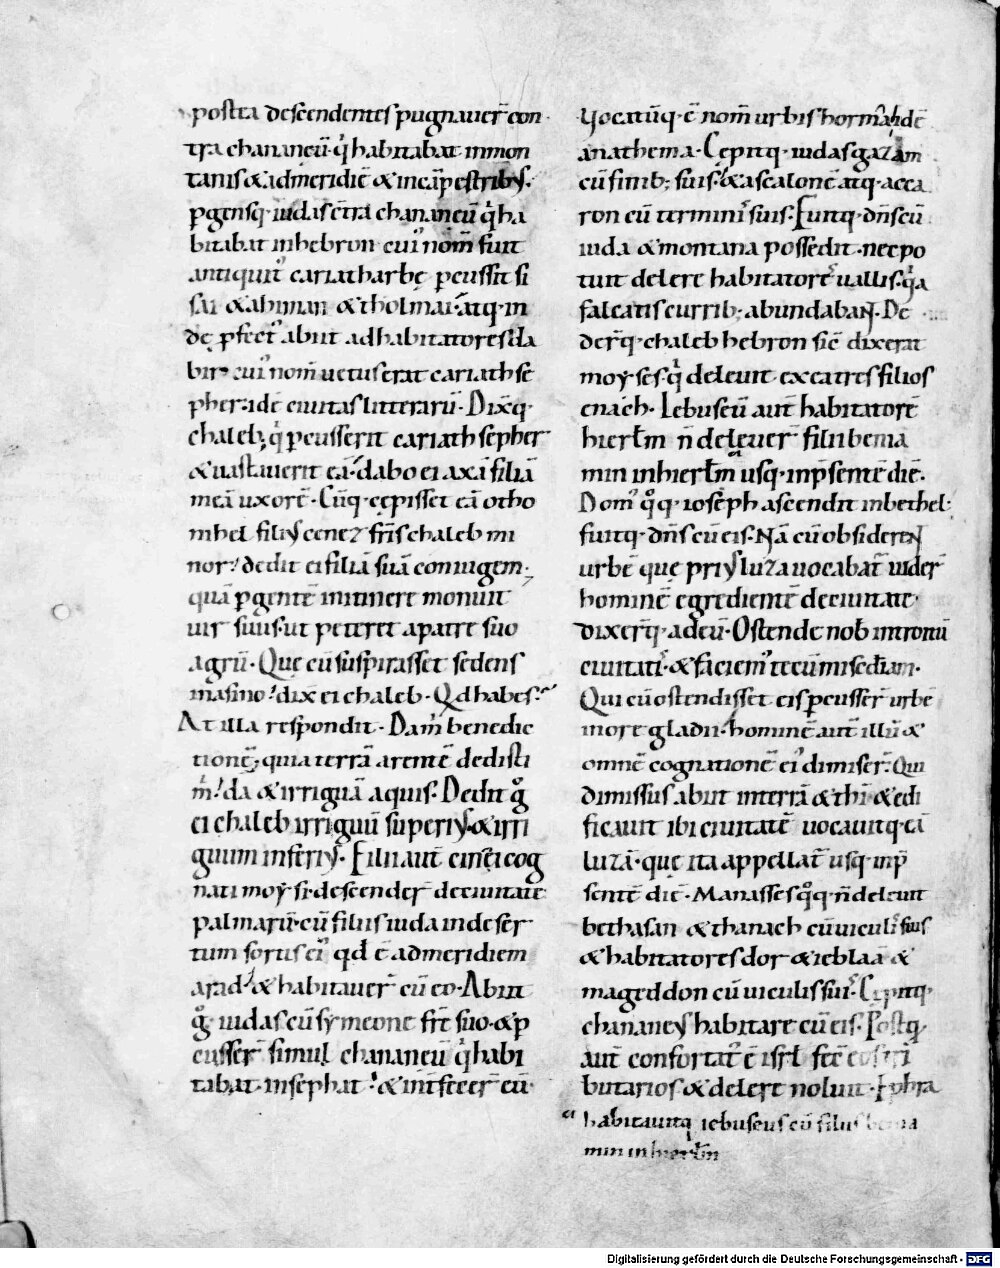 postea descendentes pugnauer̄ con
tra chananeū· q̇ habitabat in mon
tanis & ad meridiē & in cāpestribꝰ·
ꝑgensq· iudas c̄tra chananeū q̇ ha
bitabat in hebron cuiꝰ nom̄ fuit
antiquitꝰ cariatharbe ꝑcussit si
sai & ahiman & tholmai· atq· in
de ꝓfectꝰ abiit ad habitatores da
bir· cuiꝰ nom̄ uetus erat cariath se
pher· idē ciuitas litterarū· Dixq·
chaleb; q̇ ꝑcusserit cariath sepher
& uastauerit eā· dabo ei axā filiā
meā uxorē· Cūq· cepisset eā otho
nihel filiꝰ cenez fr̄s chaleb mi
nor· dedit ei filiā suā coniugem·
quā ꝑgentē in itinere monuit
uir suus· ut peteret a patre suo
agrū· Que cū suspirasset sedens
in asino· dix̄ ei chaleb· Qd habes·
At illa respondit· Da m̄ benedic
tionē; quia terrā arentē dedisti
m̄· da & irriguā aquis· Dedit g̊
ei chaleb irriguū superiꝰ· & irri
guum inferiꝰ· Filii aut̄ cinei cog
nati moysi· descender̄ de ciuitate
palmarū· cū filiis iuda in deser
tum sortis eiꝰ qd ē ad meridiem
arad· & habitauer̄ cū eo· Abiit
g̊ iudas cū symeone fr̄e suo· & ꝑ
cusser̄ simul chananeū q̇ habi
tabat in sephat· & int̄fecer̄ eū·
Uocatūq· ē nom̄ urbis horma idē
anathema· Cepitq· iudas gazam
cū finib; suis· & ascalonē atq· acca
ron cū terminis suis· Fuitq· dn̄s cū
iuda & montana possedit· nec po
tuit delere habitatores uallis· q̇a
falcatis currib; abundabant· De
der̄q· chaleb hebron sic̄ dixerat
moyses· q̇ deleuit ex ea tres filios
enach· Iebuseū aut̄ habitatorē
hierłm n̄ deleuer̄ filii benia
min in hierłm usq· in p̄sentē diē·
Domꝰ q̊q· ioseph ascendit in bethel·
fuitq· dn̄s cū eis· Nā cū obsiderent
urbē que priꝰ luza uocabat̄ uider̄
hominē egredientē de ciuitate·
dixer̄q· ad eū· Ostende nob introitū
ciuitatis· & faciemꝰ tecū mis̄ediam·
Qui cū ostendisset eis ꝑcusser̄ urbē
in ore gladii· hominē aut̄ illū &
omnē cognationē eiꝰ dimiser̄· Qui
dimissus abiit in terrā &thi· & edi
ficauit ibi ciuitatē uocauitq· eā
luzā· que ita appellat̄ usq· in p̄
sentē diē· Manasses q̊q· n̄ deleuit
bethasan & thanach cū uiculis suis
& habitatores dor & ieblaā &
mageddon cū uiculis suis· Cepitq·
chananeꝰ habitare cū eis· Postq̄
aut̄ confortatꝰ ē isrł fec̄ eos tri
butarios & delere noluit· Ephra
habitauitq iebuseus cū filiis benia
min in hierłm
Digitalisierung gefördert durch die Deutsche Forschungsgemeinschaft - DFG